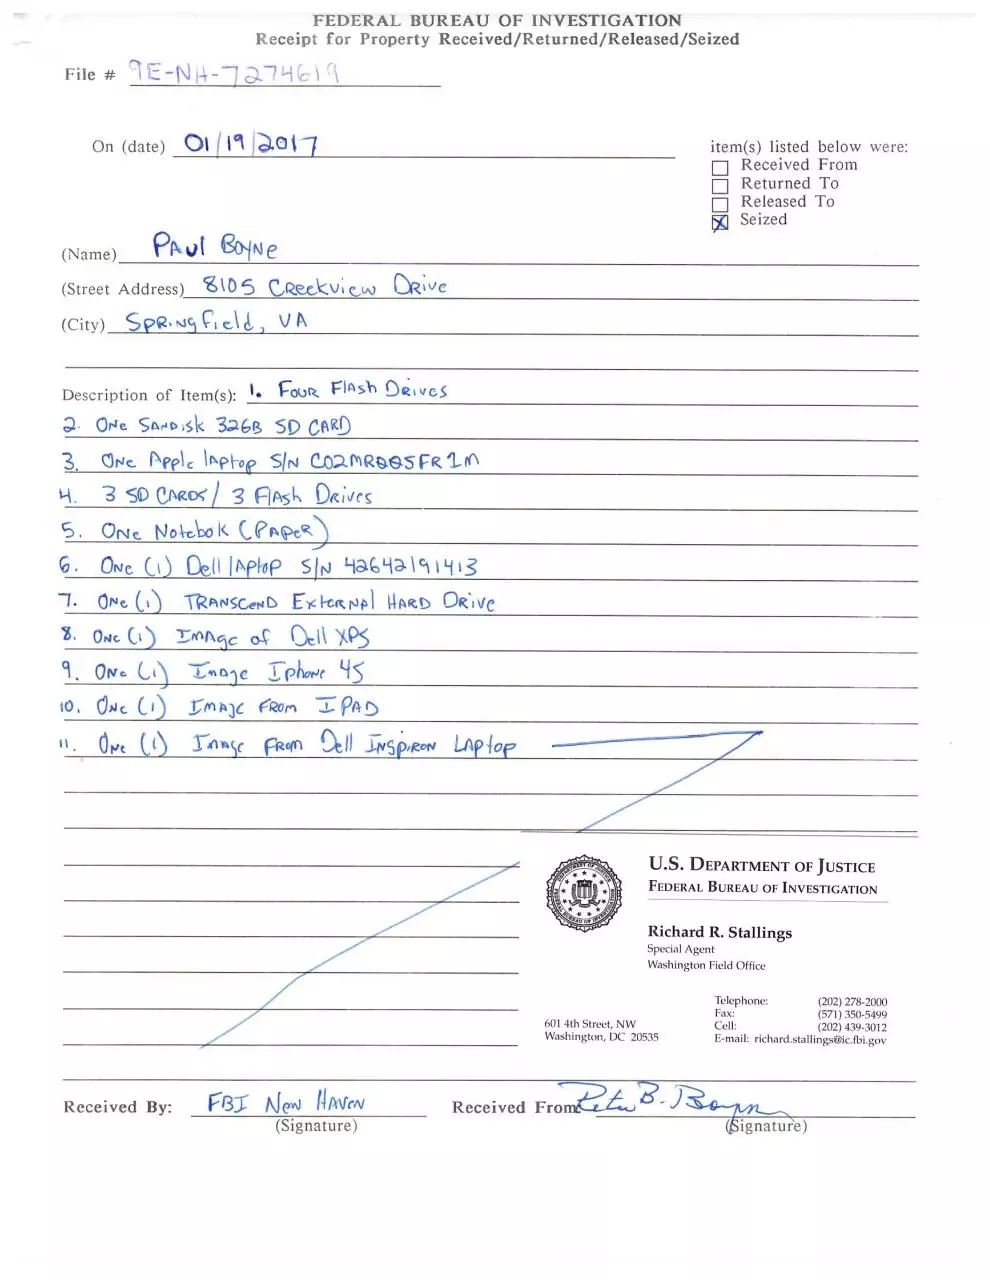 FEDERAL BUREAU OF INVESTIGATION
Receipt for Property Received/Returned/Released/Seized
File # 9E-NH-7274619
On (date) 01/19/2017
item(s) listed below were:
Received From
Returned To
Released To
Seized
(Name) Paul Boyne
(Street Address) 8105 Creekview Drive
(City) Springfield, VA
Description of Item(s): 1. Four Flash Drives
2. One Sandisk 32GB SD CARD
3. One Apple laptop S/N C02MRQQSFR1M
4. 3 SD CARDS / 3 Flash Drives
5. One Notebok (PAPeR)
6. One (1) Dell lAptop S/N 42642191413
7. One (1) TRANSCEND External HARD Drive
8. One (1) Image of Dell XPS
9. One (1) Image Iphone 4S
10. One (1) Image From IPAD
11. One (1) Image From Dell Inspiron Laptop
U.S. DEPARTMENT OF JUSTICE
FEDERAL BUREAU OF INVESTIGATION
Richard R. Stallings
Special Agent
Washington Field Office
Telephone: (202) 278-2000
Fax: (571) 350-5499
601 4th Street, NW Cell: (202) 439-3012
Washington, DC 20535 E-mail: richard.stallings@ic.fbi.gov
Received By: FBI New Haven Received From: Peter B. Boyne
(Signature) (Signature)